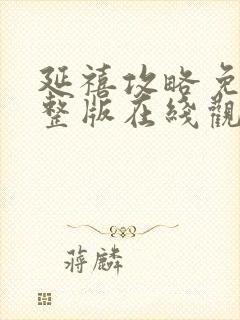 延禧攻略免
整版在线觀
蔣麟